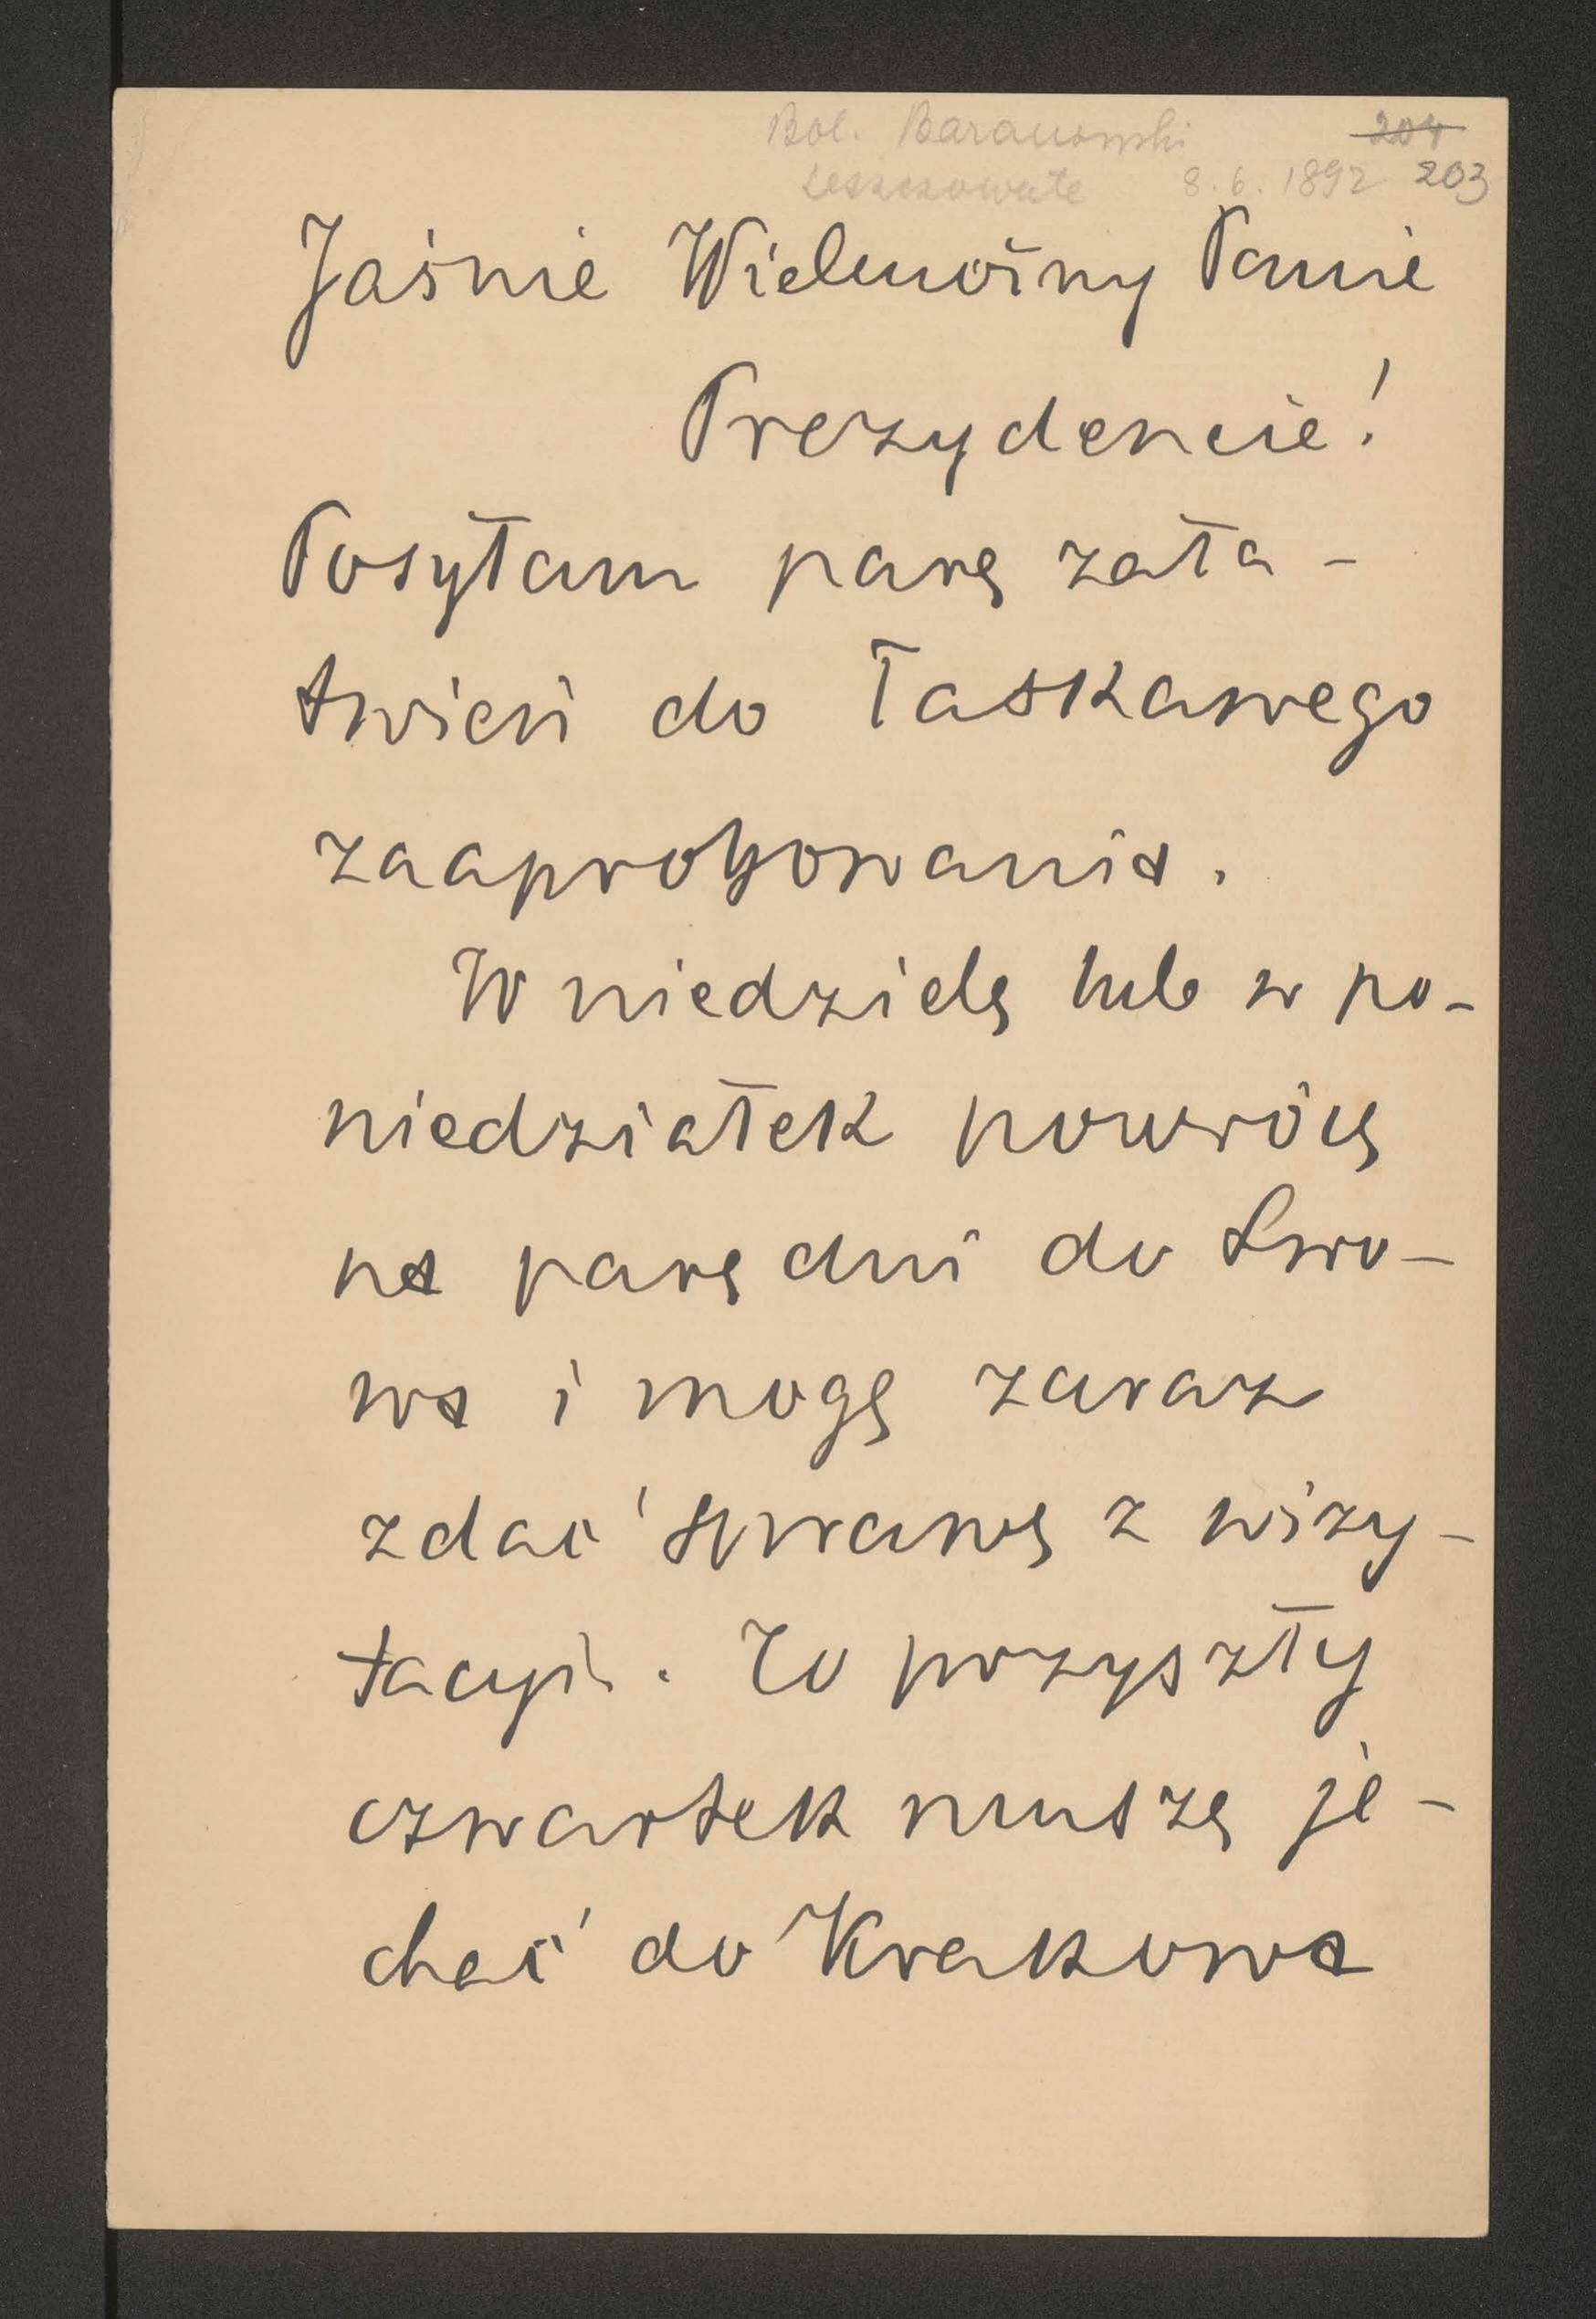 Bol. Baranowski 204
Leszczowate 8.6.1892 203
Jaśnie Wielmożny Panie
Prezydencie!
Posyłam parę zała-
twień do łaskawego
zaaprobowania.
W niedzielę lub w po-
niedziałek powrócę
na parę dni do Lwo-
wa i mogę zaraz
zdać sprawę z wizy-
tacyi. Za przyszły
czwartek muszę je-
chać do Krakowa